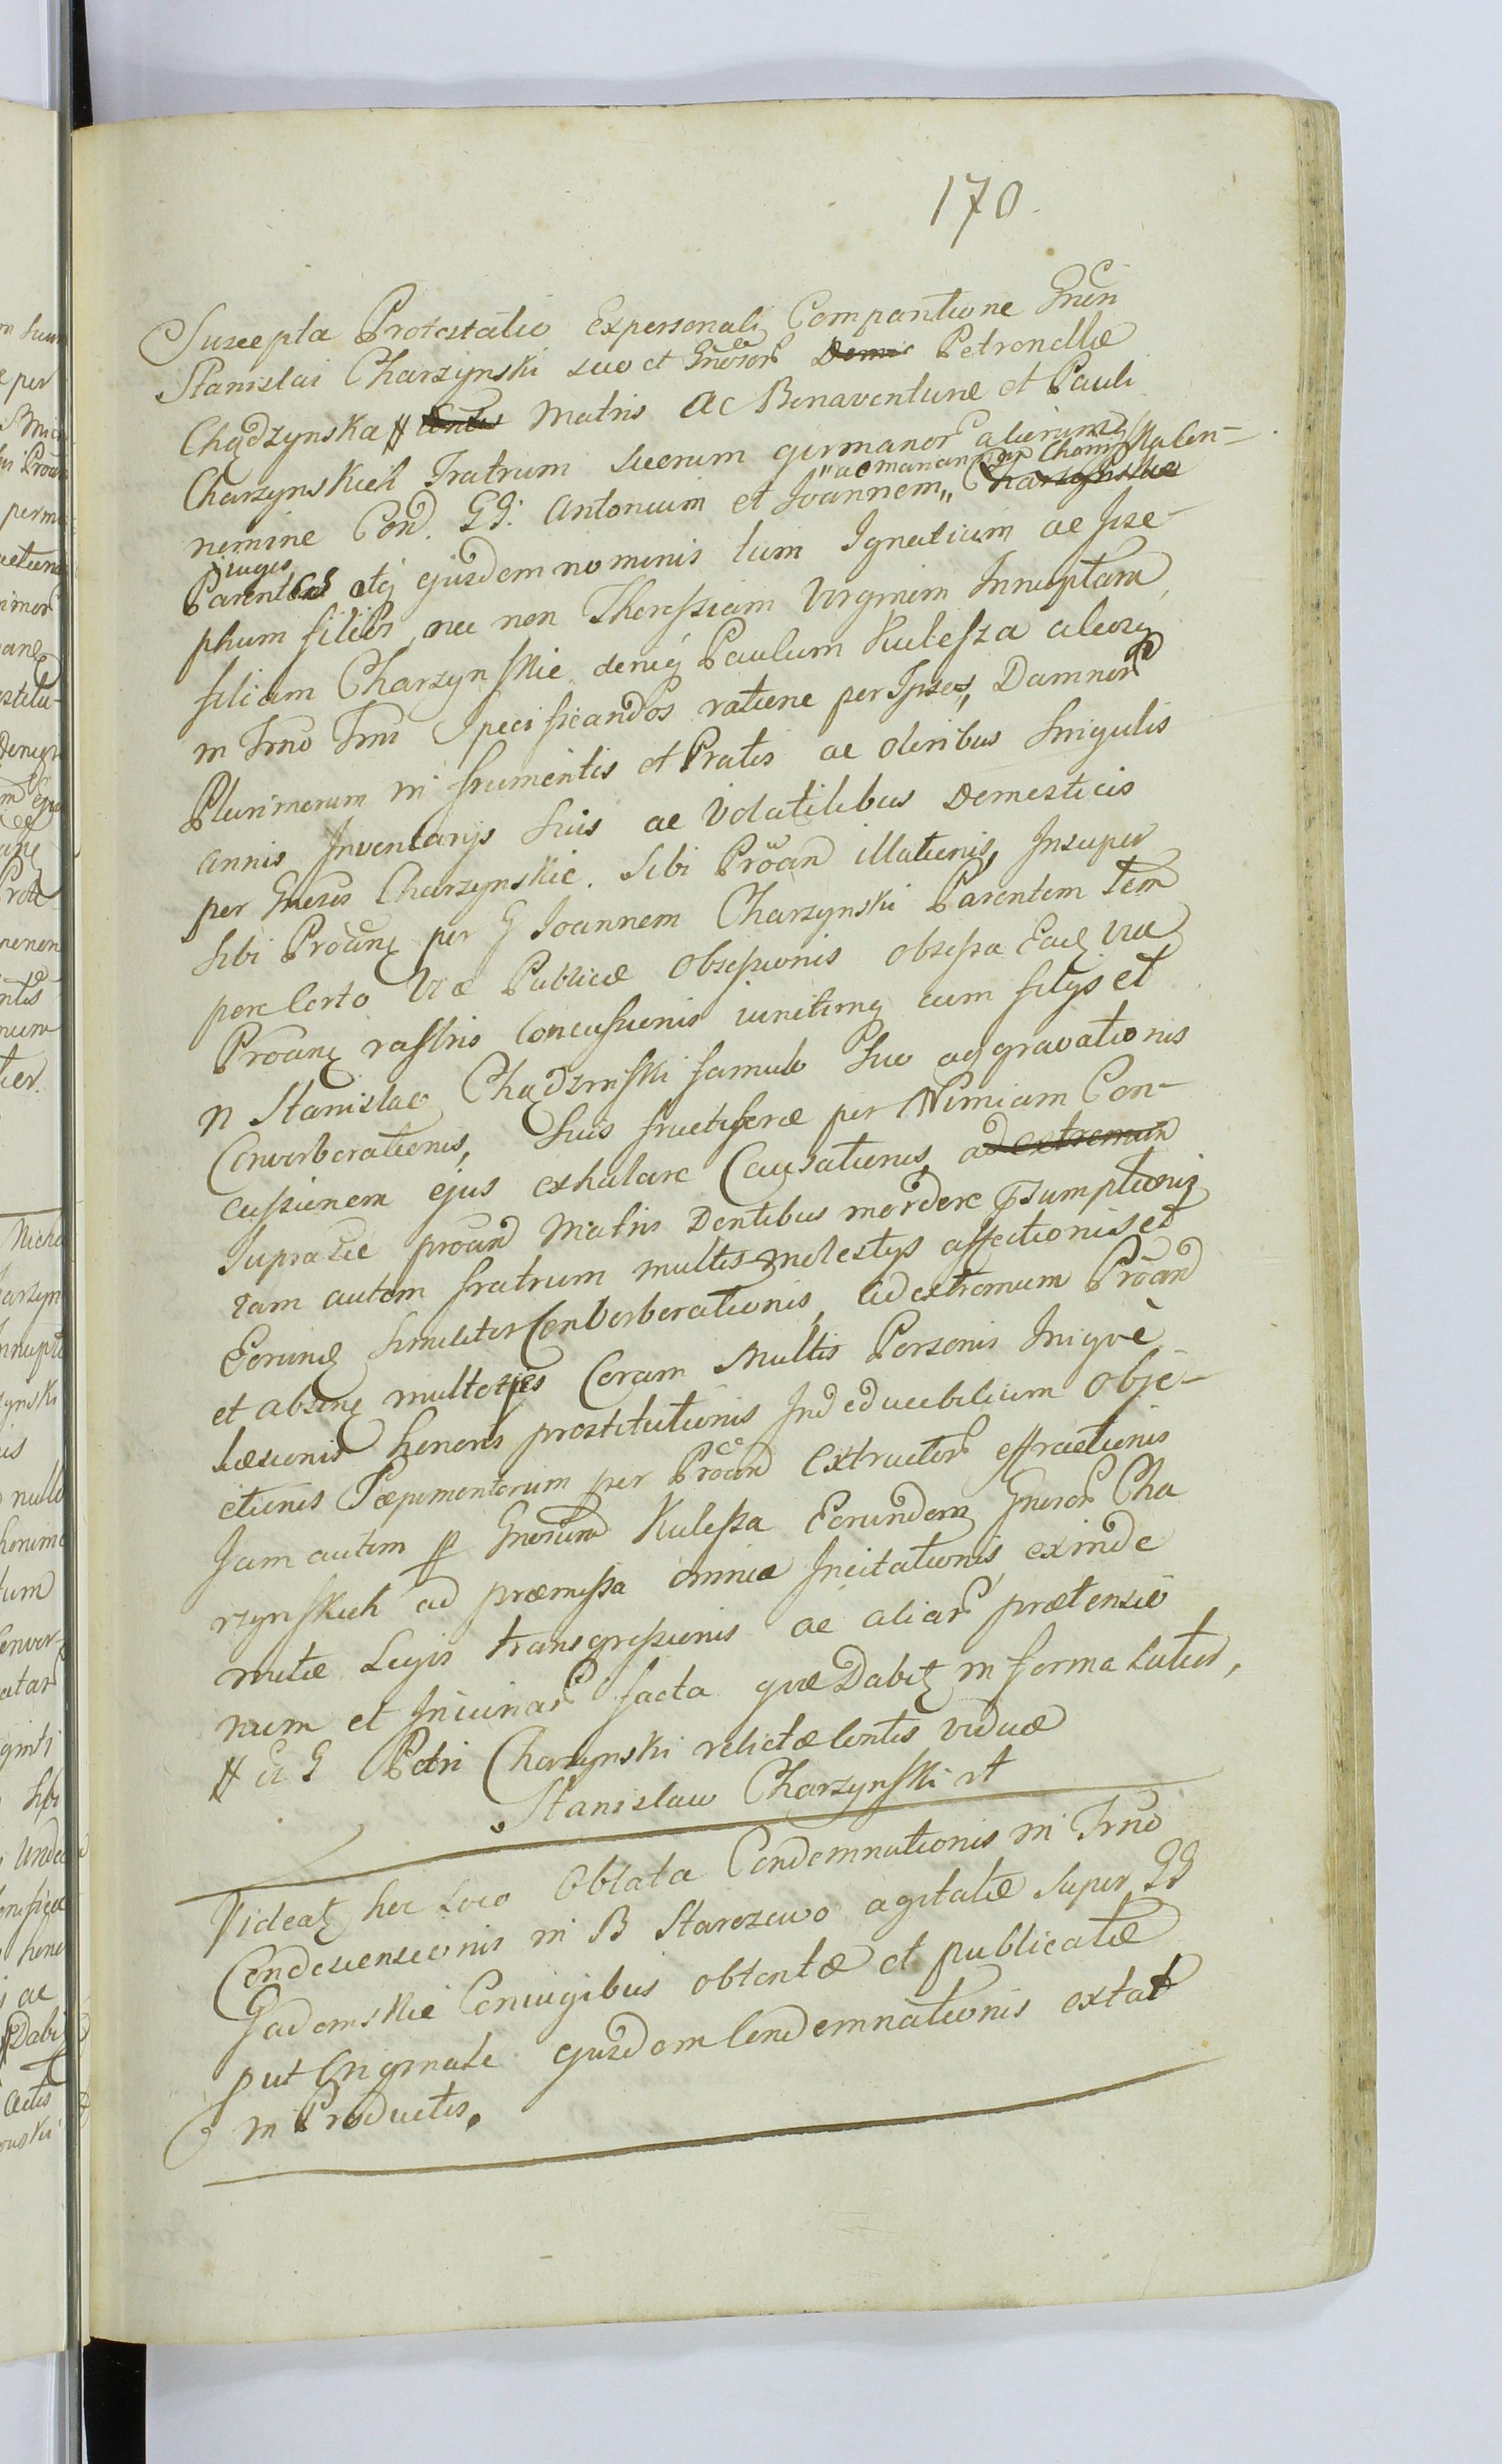 170.
Suscepta Protestatio Expersonali Comparitione Gnen
Stanislai Charzynski suo et Gnosor Petronellæ
Chądzynska # Matris ac Benaventuræ et Pauli
Charzynskich Fratrum suorum germanor aliorumq
nemine Cond. GG: Antonium et Joannem,, "ac Mariannam Charzynskie Con-
Parentes iuges atq ejusdem nominis tum Ignatium ac Jose-
phum filios, nec non Theressiam Virginem Innuptam
filiam Charzynskie deniq Paulum Kulessza aliosq
in Trno Trni Specificandos ratione per Ipsos, Damnor
Plurimorum in frumentis et Pratis ac oleribus singulis
annis Inventarijs suis ac Volatilibus Domesticis
per Gnesos Charzynskie. sibi Proan illationis, Insuper
sibi Proanq per G Joannem Charzynski Parentem tem
pore Certo Viæ Publicæ Obsessionis obsessa Eadq via
Proanq rastris Concussionis iunctimq cum filijs et
N Stanislao Chądzinski famulo suo aggravationis
Converberationis, suis fructiferæ per Nimiam Con-
cussionem ejus exhalare Causationis, ad extremum
Supra se proan Matris Dentibus mordere Psumptionis
tam autem fratrum multis molestijs affectionis et
Eorundq similiter Conberberationis, ad extremum Proan
et absenq multoties Coram Multis Personis Iniquè
læsionis honoris prostitutionis Indeducibilium Obje-
ctionis Sæpimentorum per Proan Extructor effractionis
Jam autem p Gnorum Kulessza Eorundem Gneror Cha
rzynskich ad præmissa omnia Incitationis exinde
mutæ Legis transgressionis ac aliar prætensio
num et Iniuriar facta quæ Dabit in forma Latior,
# G Petri Charzynski relictæ Contis viduæ
Stanislaw Charzynski
Videatq hoc Loco Oblata Condemnationis in Trno
Condescensionis in B Starozewo agitatæ super GG
Gadomskie Coniugibus obtentæ et publicatæ
put Originale ejusdem Condemnationis extat
in Productis.